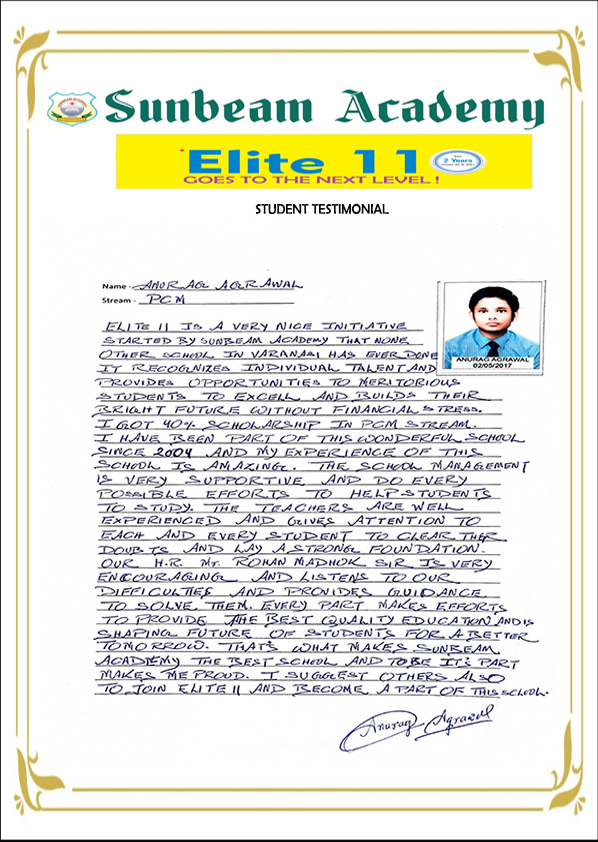 Sunbeam Academy
Elite 11
2 Years
GOES TO THE NEXT LEVEL !
STUDENT TESTIMONIAL
Name - ANURAG AGRAWAL
Stream - PCM
ANURAG AGRAWAL
02/05/2017
ELITE 11 IS A VERY NICE INITIATIVE
STARTED BY SUNBEAM ACADEMY THAT NONE
OTHER SCHOOL IN VARANASI HAS EVER DONE
IT RECOGNIZES INDIVIDUAL TALENT AND
PROVIDES OPPORTUNITIES TO MERITORIOUS
STUDENTS TO EXCELL AND BUILDS THEIR
BRIGHT FUTURE WITHOUT FINANCIAL STRESS.
I GOT 40% SCHOLARSHIP IN PCM STREAM.
I HAVE BEEN PART OF THIS WONDERFUL SCHOOL
SINCE 2004 AND MY EXPERIENCE OF THIS
SCHOOL IS AMAZING. THE SCHOOL MANAGEMENT
IS VERY SUPPORTIVE AND DO EVERY
POSSIBLE EFFORTS TO HELP STUDENTS
TO STUDY. THE TEACHERS ARE WELL
EXPERIENCED AND GIVES ATTENTION TO
EACH AND EVERY STUDENT TO CLEAR THER
DOUBTS AND LAY A STRONG FOUNDATION.
OUR H.R. Mr. ROHAN MADHOK SIR IS VERY
ENCOURAGING AND LISTENS TO OUR
DIFFICULTIES AND PROVIDES GUIDANCE
TO SOLVE THEM. EVERY PART MAKES EFFORTS
TO PROVIDE THE BEST QUALITY EDUCATION AND IS
SHAPING FUTURE OF STUDENTS FOR A BETTER
TOMORROW. THAT'S WHAT MAKES SUNBEAM
ACADEMY THE BEST SCHOOL AND TO BE IT'S PART
MAKES ME PROUD. I SUGGEST OTHERS ALSO
TO JOIN ELITE 11 AND BECOME A PART OF THIS SCHOOL.
Anurag Agrawal